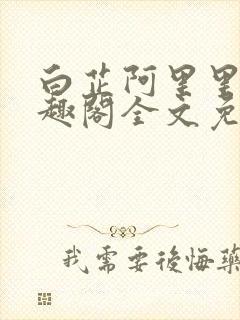 白芷阿里里
趣阁全文免
我需要後悔藥